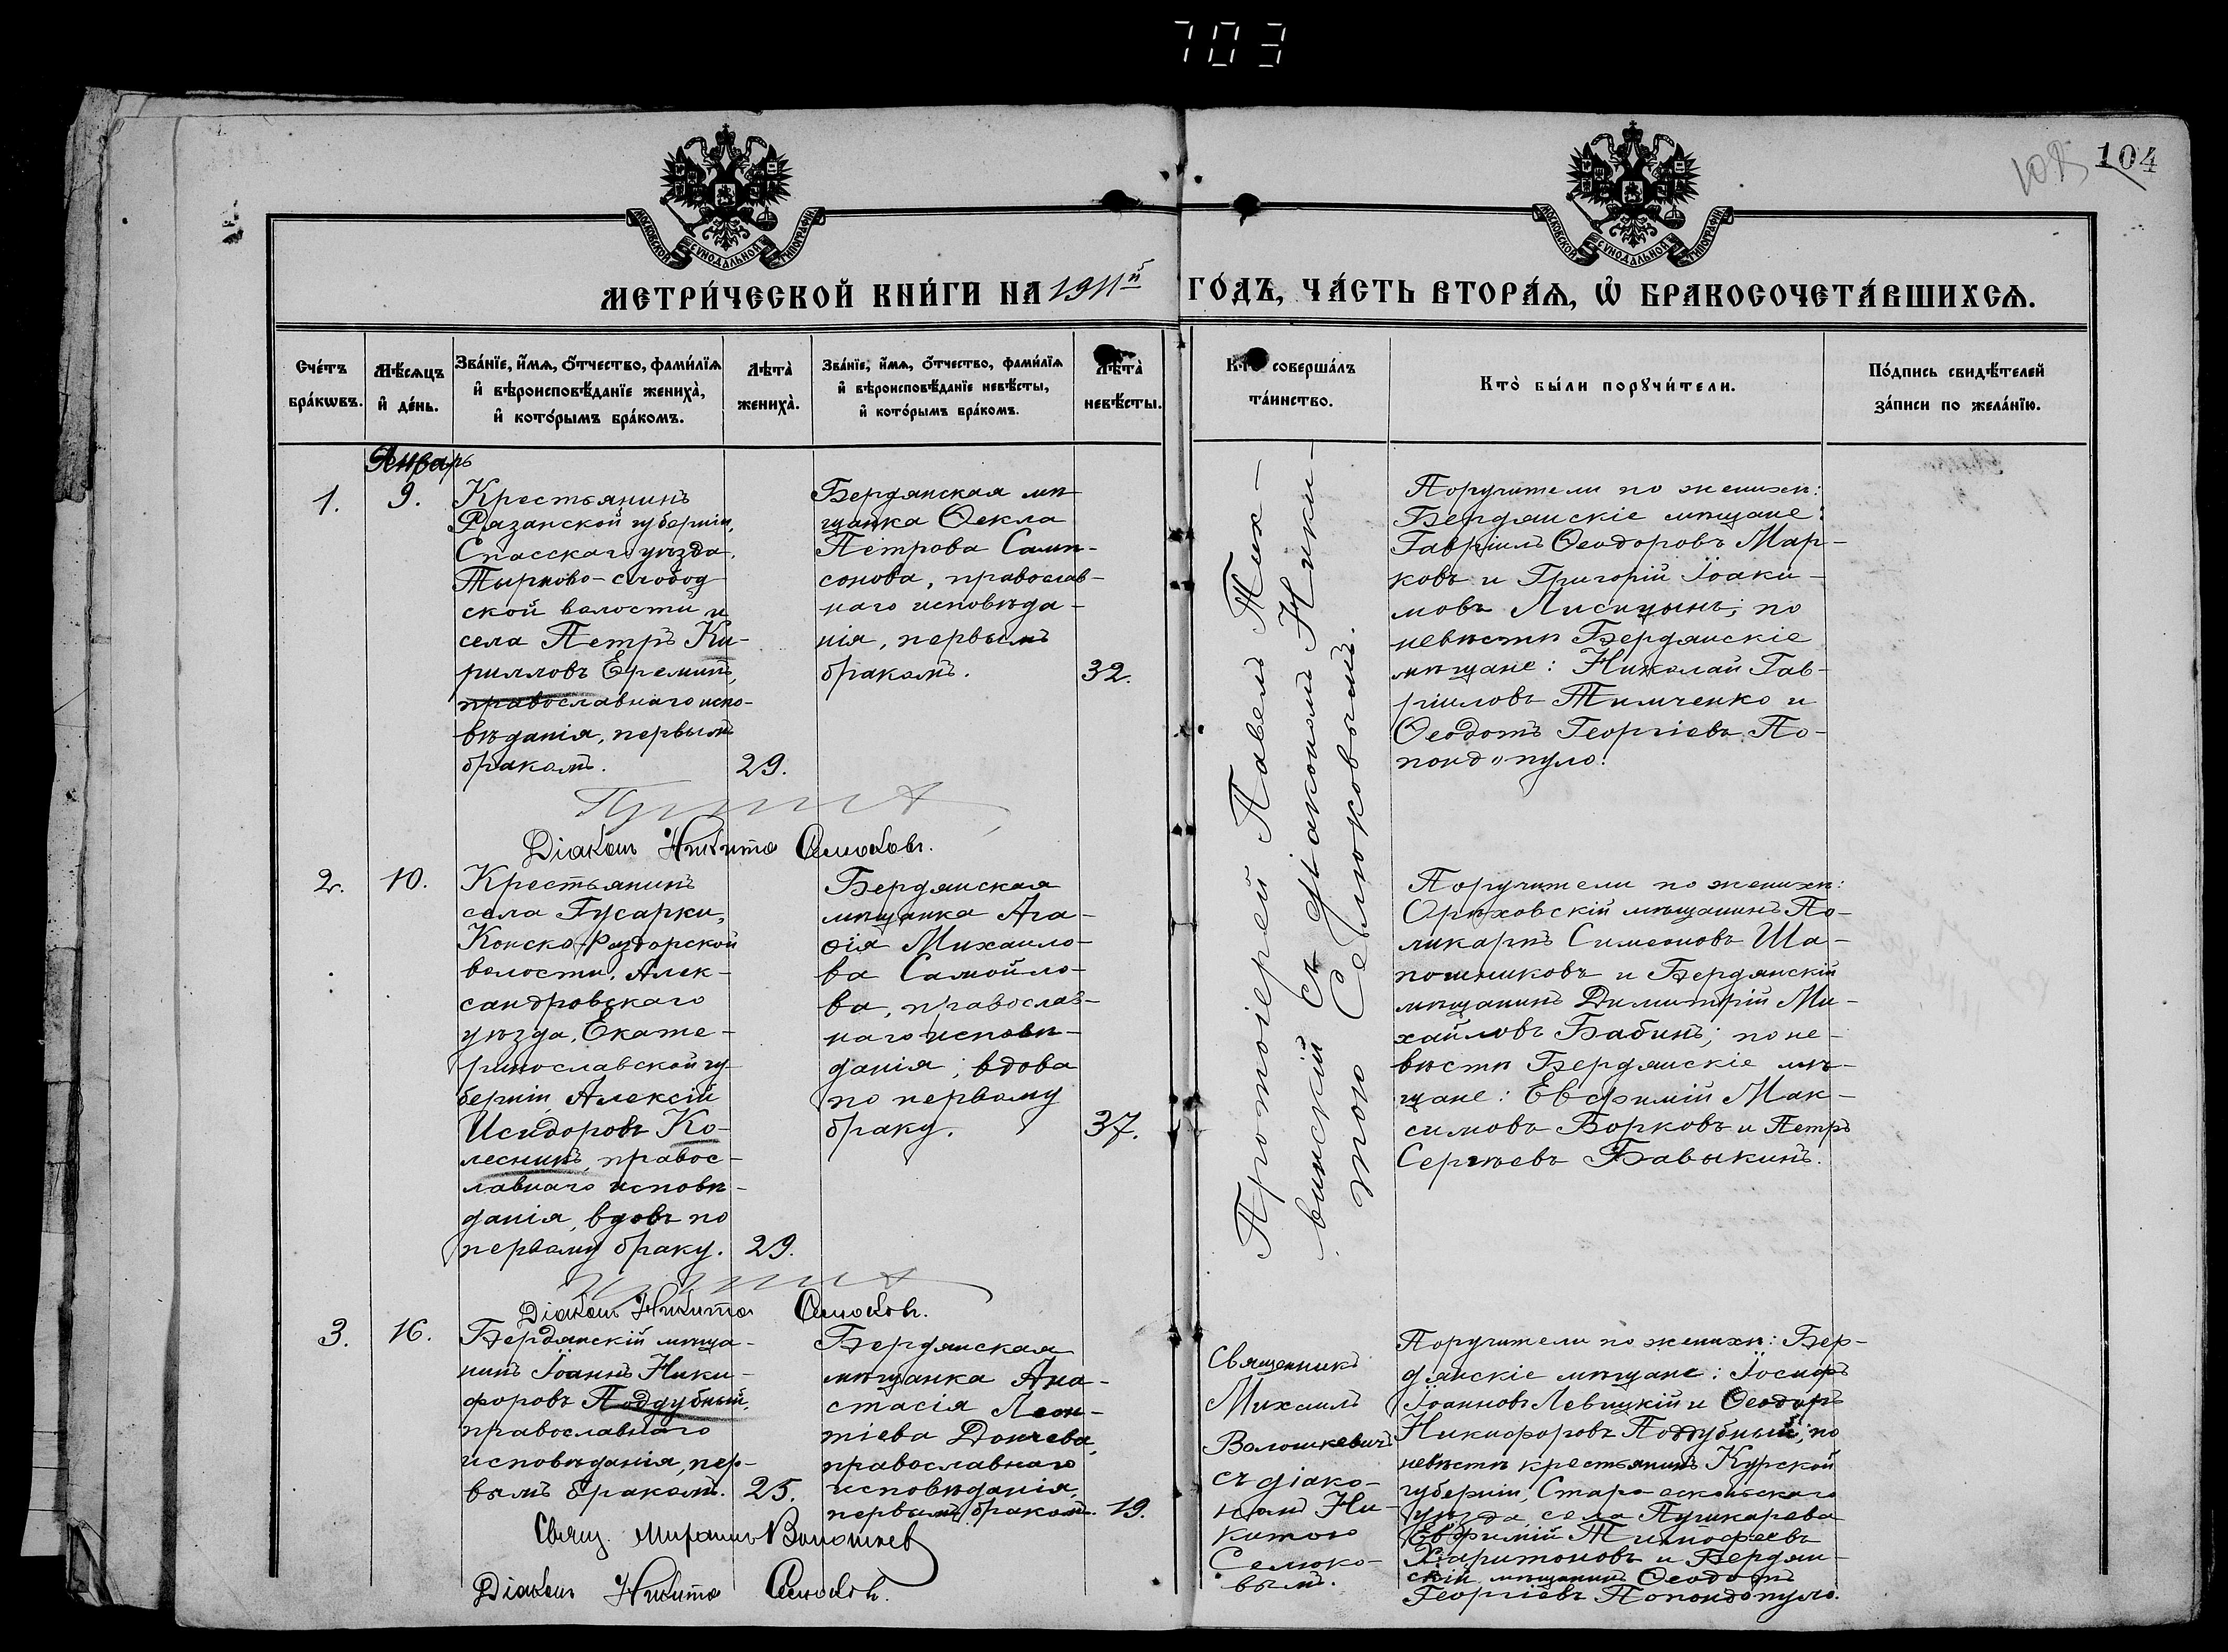 703
104
МОСКОВСКОЙ СѴНОДАЛЬНОЙ ТИПОГРАФІИ
МОСКОВСКОЙ СѴНОДАЛЬНОЙ ТИПОГРАФІИ
МЕТРИ́ЧЕСКОЙ КНИ́ГИ НА 1911й ГО́ДЪ, ЧА́СТЬ ВТОРА́Ѧ, Ѡ҆ БРАКОСОЧЕТА́ВШИХСѦ.
Сче́тъ
бра́кѡвъ.
Мѣ́сѧцъ
и҆ де́нь.
Зва́нїе, и҆́мѧ, ѻ҆́тчество, фами́лїѧ
и҆ вѣроисповѣ́данїе жениха̀,
и҆ кото́рымъ бра́комъ.
Лѣта̀
жениха̀.
Зва́нїе, и҆́мѧ, ѻ҆́тчество, фами́лїѧ
и҆ вѣроисповѣ́данїе невѣ́сты,
и҆ кото́рымъ бра́комъ.
Лѣта̀
невѣ́сты.
Кто̀ соверша́лъ
та́инство.
Кто̀ бы́ли порꙋчи́тели.
По́дпись свидѣ́телей
за́писи по жела́нїю.
Январь
1.
9.
Крестьянинъ
Рязанской губерніи,
Спасскаго уѣзда,
Тырново-слобод
ской волости и
села Петръ Ки-
рилловъ Ереминъ,
православнаго испо-
вѣданія, первымъ
бракомъ.
29.
Бердянская мѣ
щанка Ѳекла
Петрова Самп-
сонова, православ-
наго исповѣда-
нія, первымъ
бракомъ.
32.
Протоіерей Павелъ Тих-
винскій съ діакономъ Ники-
тою Селюковымъ.
Поручители по женихѣ:
Бердянскіе мѣщане:
Гавріилъ Ѳеодоровъ Мар-
ковъ и Григорій Іоаки-
мовъ Лисицынъ; по
невѣстѣ Бердянскіе
мѣщане: Николай Гав-
ріиловъ Тимченко и
Ѳеодотъ Георгіевъ По-
пондопуло.
Діаконъ Никита Селюковъ.
2.
10.
Крестьянинъ
села Гусарки,
Конско-Раздорской
волости, Алек-
сандровскаго
уѣзда, Екате-
ринославской гу
берніи, Алексій
Исидоровъ Ко-
лесникъ, правос-
лавнаго исповѣ-
данія, вдовъ по
первому браку.
29.
Бердянская
мѣщанка Ага-
ѳія Михаило-
ва Самойло-
ва, православ-
наго исповѣ-
данія, вдова
по первому
браку.
37.
Поручители по женихѣ:
Орѣховскій мѣщанинъ По-
ликарпъ Симеоновъ Ша-
пошниковъ и Бердянскій
мѣщанинъ Димитрій Ми-
хайловъ Бабинъ; по не-
вѣстѣ Бердянскіе мѣ-
щане: Евфимій Мак-
симовъ Борковъ и Петръ
Сергѣевъ Бавыкинъ.
Діаконъ Никита Селюковъ.
3.
16.
Бердянскій мѣща-
нинъ Іоаннъ Ники-
форовъ Поддубный,
православнаго
исповѣданія, пер-
вымъ бракомъ.
25.
Бердянская
мѣщанка Ана-
стасія Леон-
тіева Дончева,
православнаго
исповѣданія,
первымъ бракомъ.
19.
Священникъ
Михаилъ
Волошкевичъ
съ діако-
номъ Ни-
китою
Селюко-
вымъ.
Поручители по женихѣ: Бер-
дянскіе мѣщане: Іосифъ
Іоанновъ Левицкій и Ѳеодоръ
Никифоровъ Поддубный; по
невѣстѣ крестьянинъ Курской
губерніи, Старо-оскольскаго
уѣзда, села Пушкарева
Евфимій Тимоѳеевъ
Харитоновъ и Бердян-
скій мѣщанинъ Ѳеодотъ
Георгіевъ Попондопуло.
Свящ. Михаилъ
Діаконъ Никита Селюковъ.